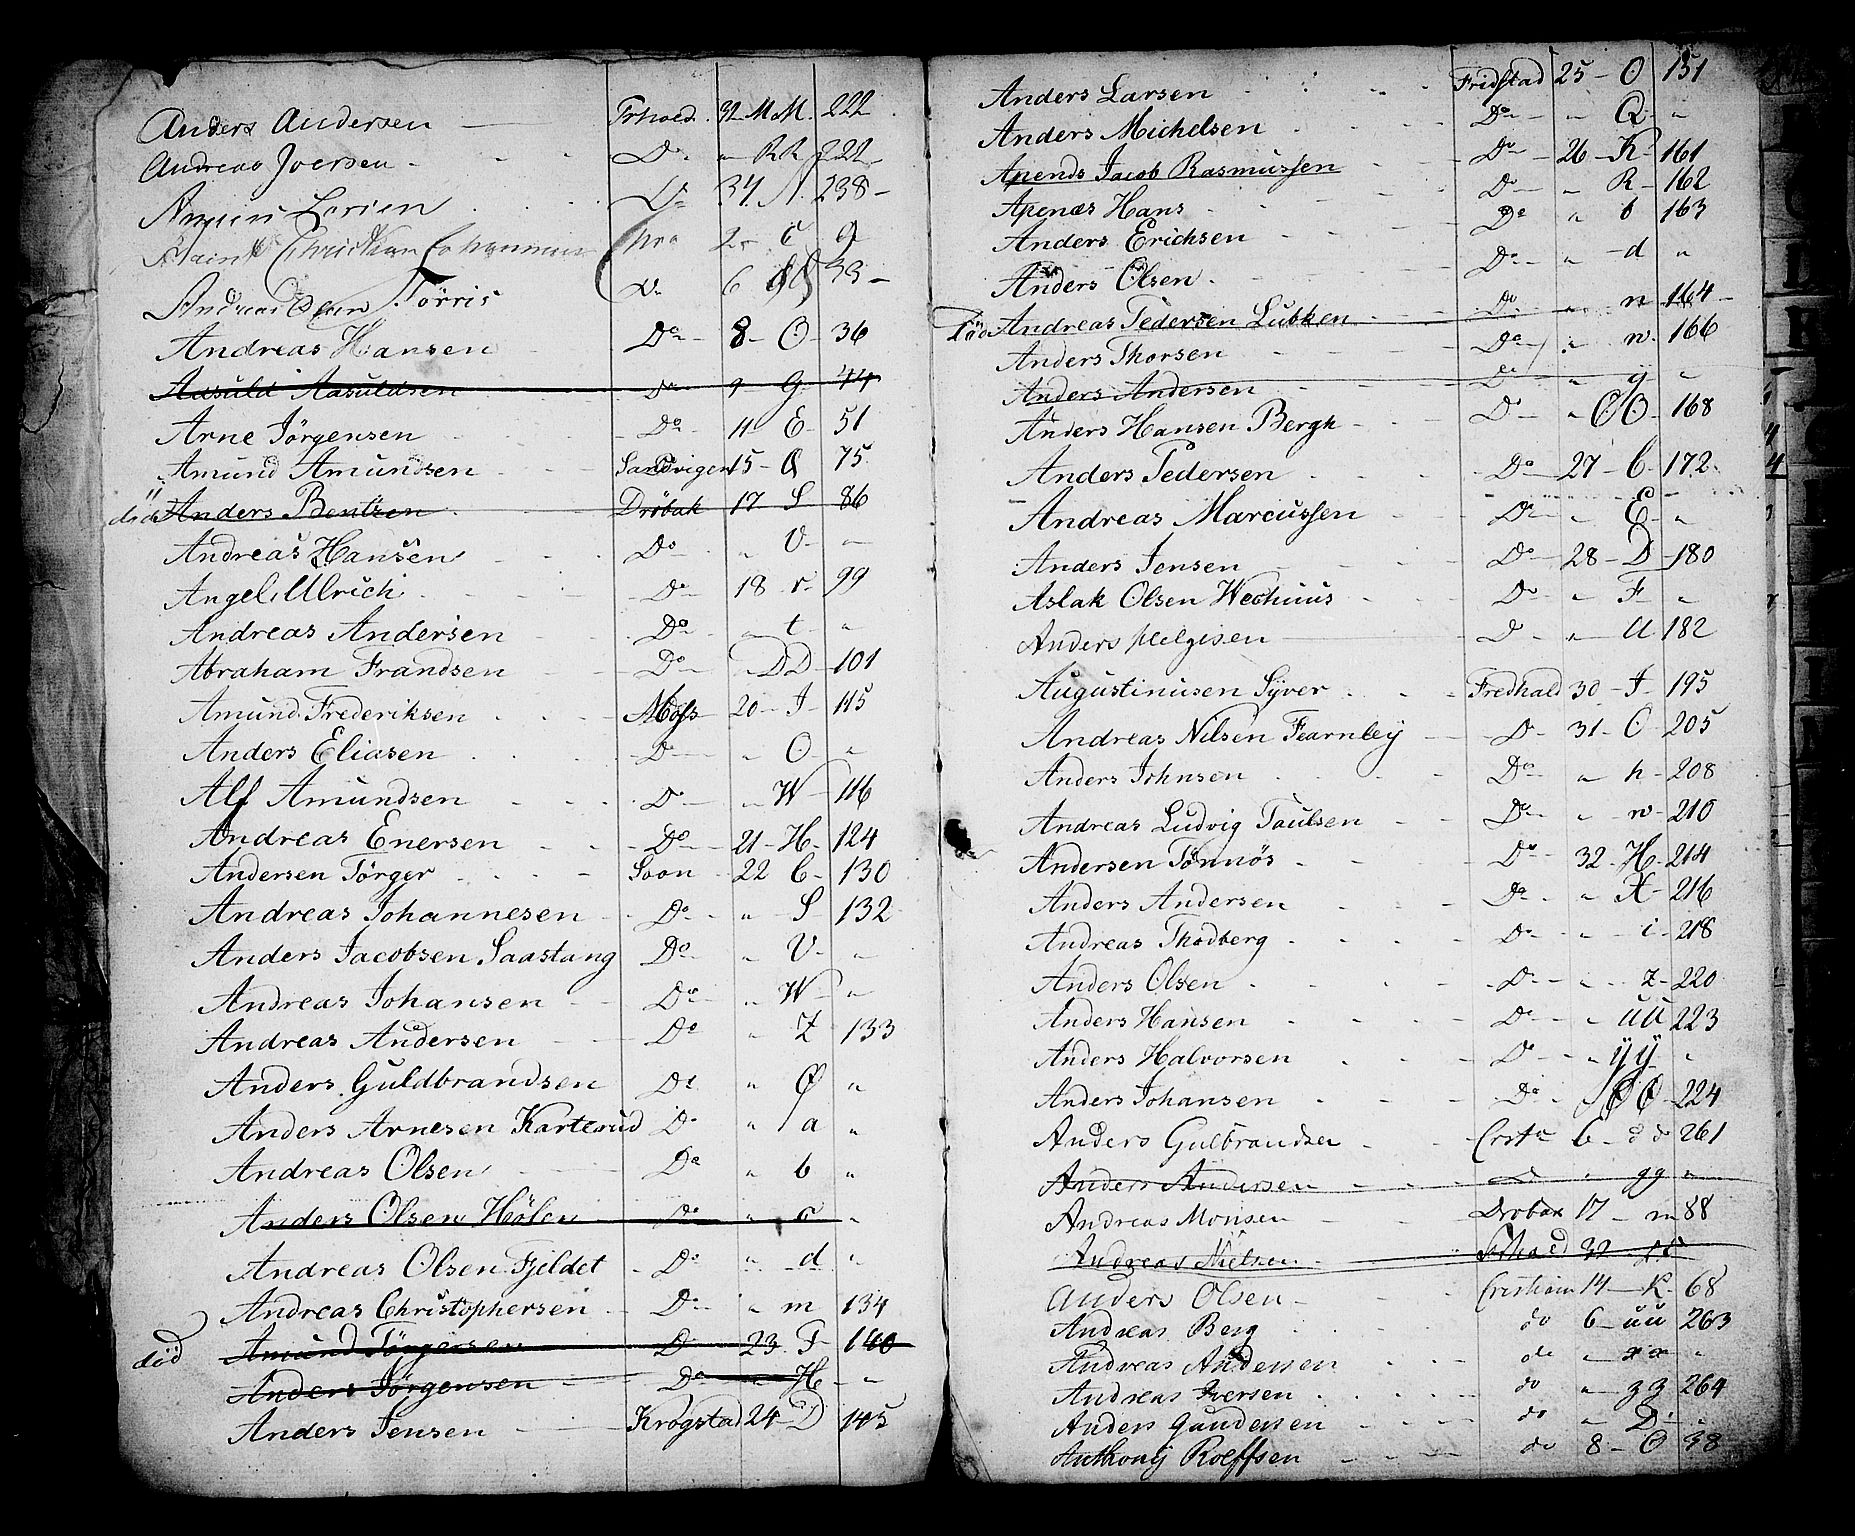 Anders Andersen Frhald. 32 M.M. 222
Andreas Joersen Do " RR 222
Do 34. N. 238
Christian 2
Andreas Torris Do 6 33
Andreas Hansen Do 8 O 36
Aasuld Aasuldsen Do 9 G 44
Arne Jörgensen Do 11 E 51
Amund Amundsen Sandvigen 15 Q 75
död Anders Bentzen Dröbak 17 S 86
Andreas Hansen Do " V "
Angel, Ulrich Do 18 r 99
Andreas Andersen Do " t "
Abraham Frandsen Do " DD 101
Amund Frederiksen Moss 20 I 115
Anders Eliasen Do " O "
Alf Amundsen Do " W 116
Andreas Enersen Do 21 H 124
Andersen Törger Soon 22 C 130
Andreas Johannesen Do " S 132
Anders Jacobsen Saastang Do " V "
Andreas Johansen Do " W "
Andreas Andersen Do " Z 133
Anders Guldbrandsen Do " Ø "
Anders Arnesen Karterud Do " a "
Andreas Olsen Do " b "
Anders Olsen Hölen Do " c "
Andreas Olsen Fjeldet Do " d "
Andreas Christophersen Do " m 134
död Amund Törgersen Do 23 F 140
Anders Jörgensen Do " H "
Anders Jensen Krogstad 24 D 145
Anders Larsen Fridstad 25 O 151
Anders Michelsen Do " Q "
Apends Jacob Rasmussen Do 26 K 161
Apenæs Hans Do " R 162
Anders Erichsen Do " b 163
Anders Olsen Do " d "
död Andreas Pedersen Lübken Do " n 164
Anders Thorsen Do " w 166
Anders Andersen Do " y "
Anders Hansen Bergh Do " OO 168
Anders Pedersen Do 27 C 172
Andreas Marcussen Do " E "
Anders Jensen Do 28 D 180
Aslak Olsen Do " F "
Anders Helgesen Do " U 182
Augustinusen Syver Fredhald 30 I 195
Andreas Nilsen Fearnley Do 31 C 205
Anders Johnsen Do " h 208
Andreas Ludvig Paulsen Do " w 210
Andersen Tönnös Do 32 H 214
Anders Andersen Do " X 216
Andreas Thodberg Do " i 218
Anders Olsen Do " z 220
Anders Hansen Do " uu 223
Anders Halvorsen Do " ÿÿ "
Anders Johansen Do " 224
Anders Gulbrandsen Crsta 6 dd 261
Anders Andersen Do " gg "
Andreas Monsen Drobax 17 m 88
Andreas Nielsen 32
Anders Olsen 14 K 68
Andreas Berg do 6 uu 263
Andreas Andersen do " xx "
Andreas Iversen do " zz 264
Anders Gundersen do " D "
Anthony Roeffsen do 8 O 38